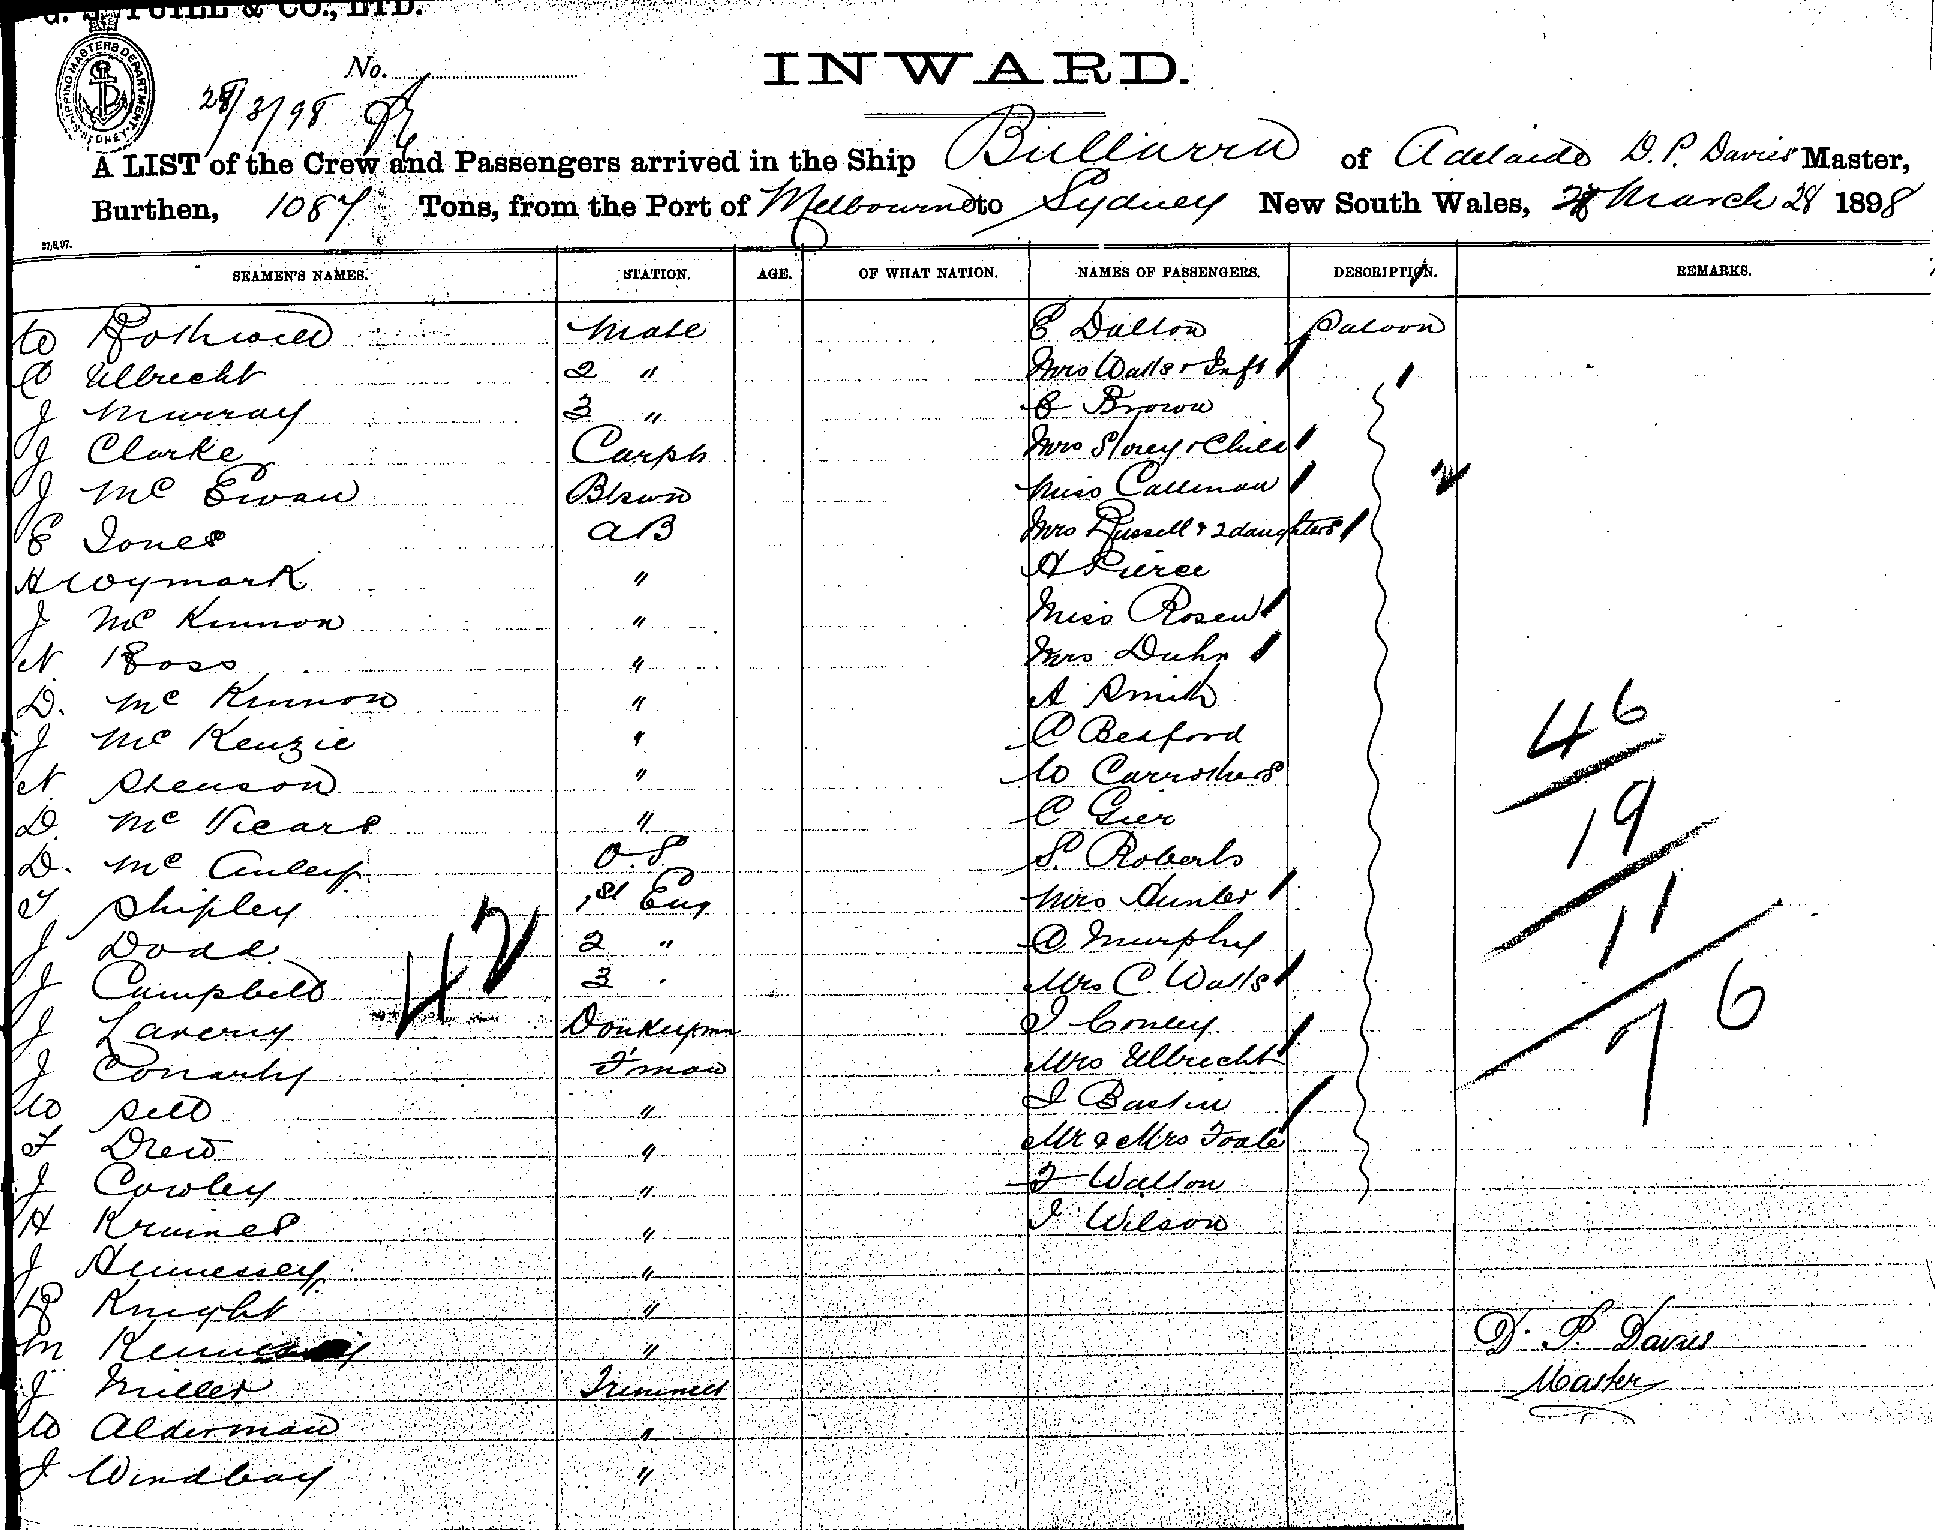 G. S. YUILL & CO., LTD.
SHIPPING MASTERS DEPARTMENT SYDNEY
No.
28/3/98
INWARD.
A LIST of the Crew and Passengers arrived in the Ship Bullarra of Adelaide D. P. Davies Master,
Burthen, 1087 Tons, from the Port of Melbourne to Sydney New South Wales, March 28 1898
27,8,97.
SEAMEN'S NAMES. STATION. AGE. OF WHAT NATION. NAMES OF PASSENGERS. DESCRIPTION. REMARKS.
W Rothwell Mate E Dalton Saloon
C Ulbrecht 2 " Mrs Watts & Inft 1
J Murray 3 " C Brown
J Clarke Carptr Mrs Storey & Child
J McEwan Bswn Miss Callinan 2
E Jones AB Mrs Russell & 2 daughters
H Wymark " A Pierce
J McKinnon " Miss Rosen
N Ross " Mrs Duhn
D. McKinnon " A Smith
J McKenzie " C Bedford 46
N Stenson " W Carrothers
D. McVicars " C Gier 19
D. McAuley O.S. S. Roberts
T Shipley 1st Eng Mrs Hunter 11
J Dodd 42 2 " C Murphy
J Campbell 3 " Mrs C Watts
J Laverty Donkeymn J Conley 76
J Conarty F'man Mrs Ulbrecht
W Sell " J Bastin
F Drew " Mr & Mrs Foale
J Cowley " F Walton
H " J Wilson
J Hennessey "
R Knight "
M "
J Miller Trimmer
W Alderman "
J Windbay "
D. P. Davies
Master